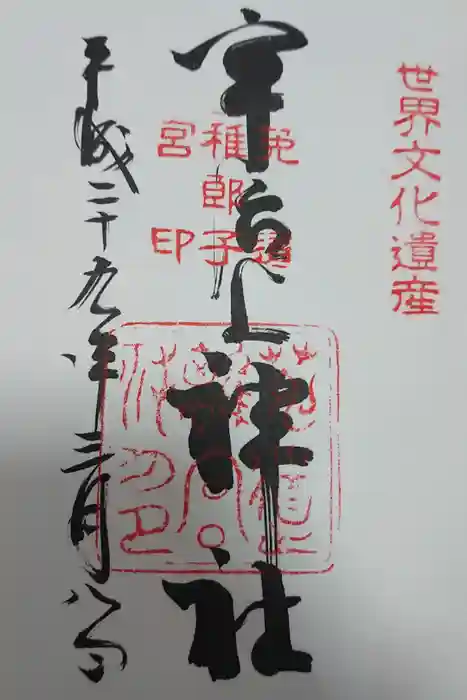 世界文化遺産
宇治上神社
菟道
稚郎子
宮印
平成二十九年三月八日